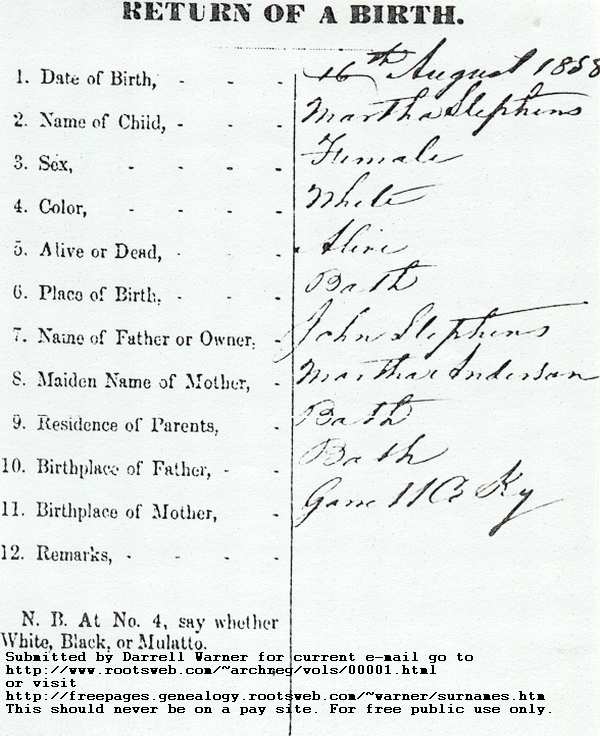 RETURN OF A BIRTH.
1. Date of Birth, - - - 16th August 1858
2. Name of Child, - - - Martha Stephens
3. Sex, - - - - Female
4. Color, - - - - White
5. Alive or Dead, - - - Alive
6. Place of Birth, - - - Bath
7. Name of Father or Owner, - John Stephens
8. Maiden Name of Mother, - Martha Anderson
9. Residence of Parents, - Bath
10. Birthplace of Father, - - Bath
11. Birthplace of Mother, - Ky
12. Remarks, - - - -
N. B. At No. 4, say whether
White, Black, or Mulatto.
Submitted by Darrell Warner for current e-mail go to
http://www.rootsweb.com/~archreg/vols/00001.html
or visit
http://freepages.genealogy.rootsweb.com/~warner/surnames.htm
This should never be on a pay site. For free public use only.